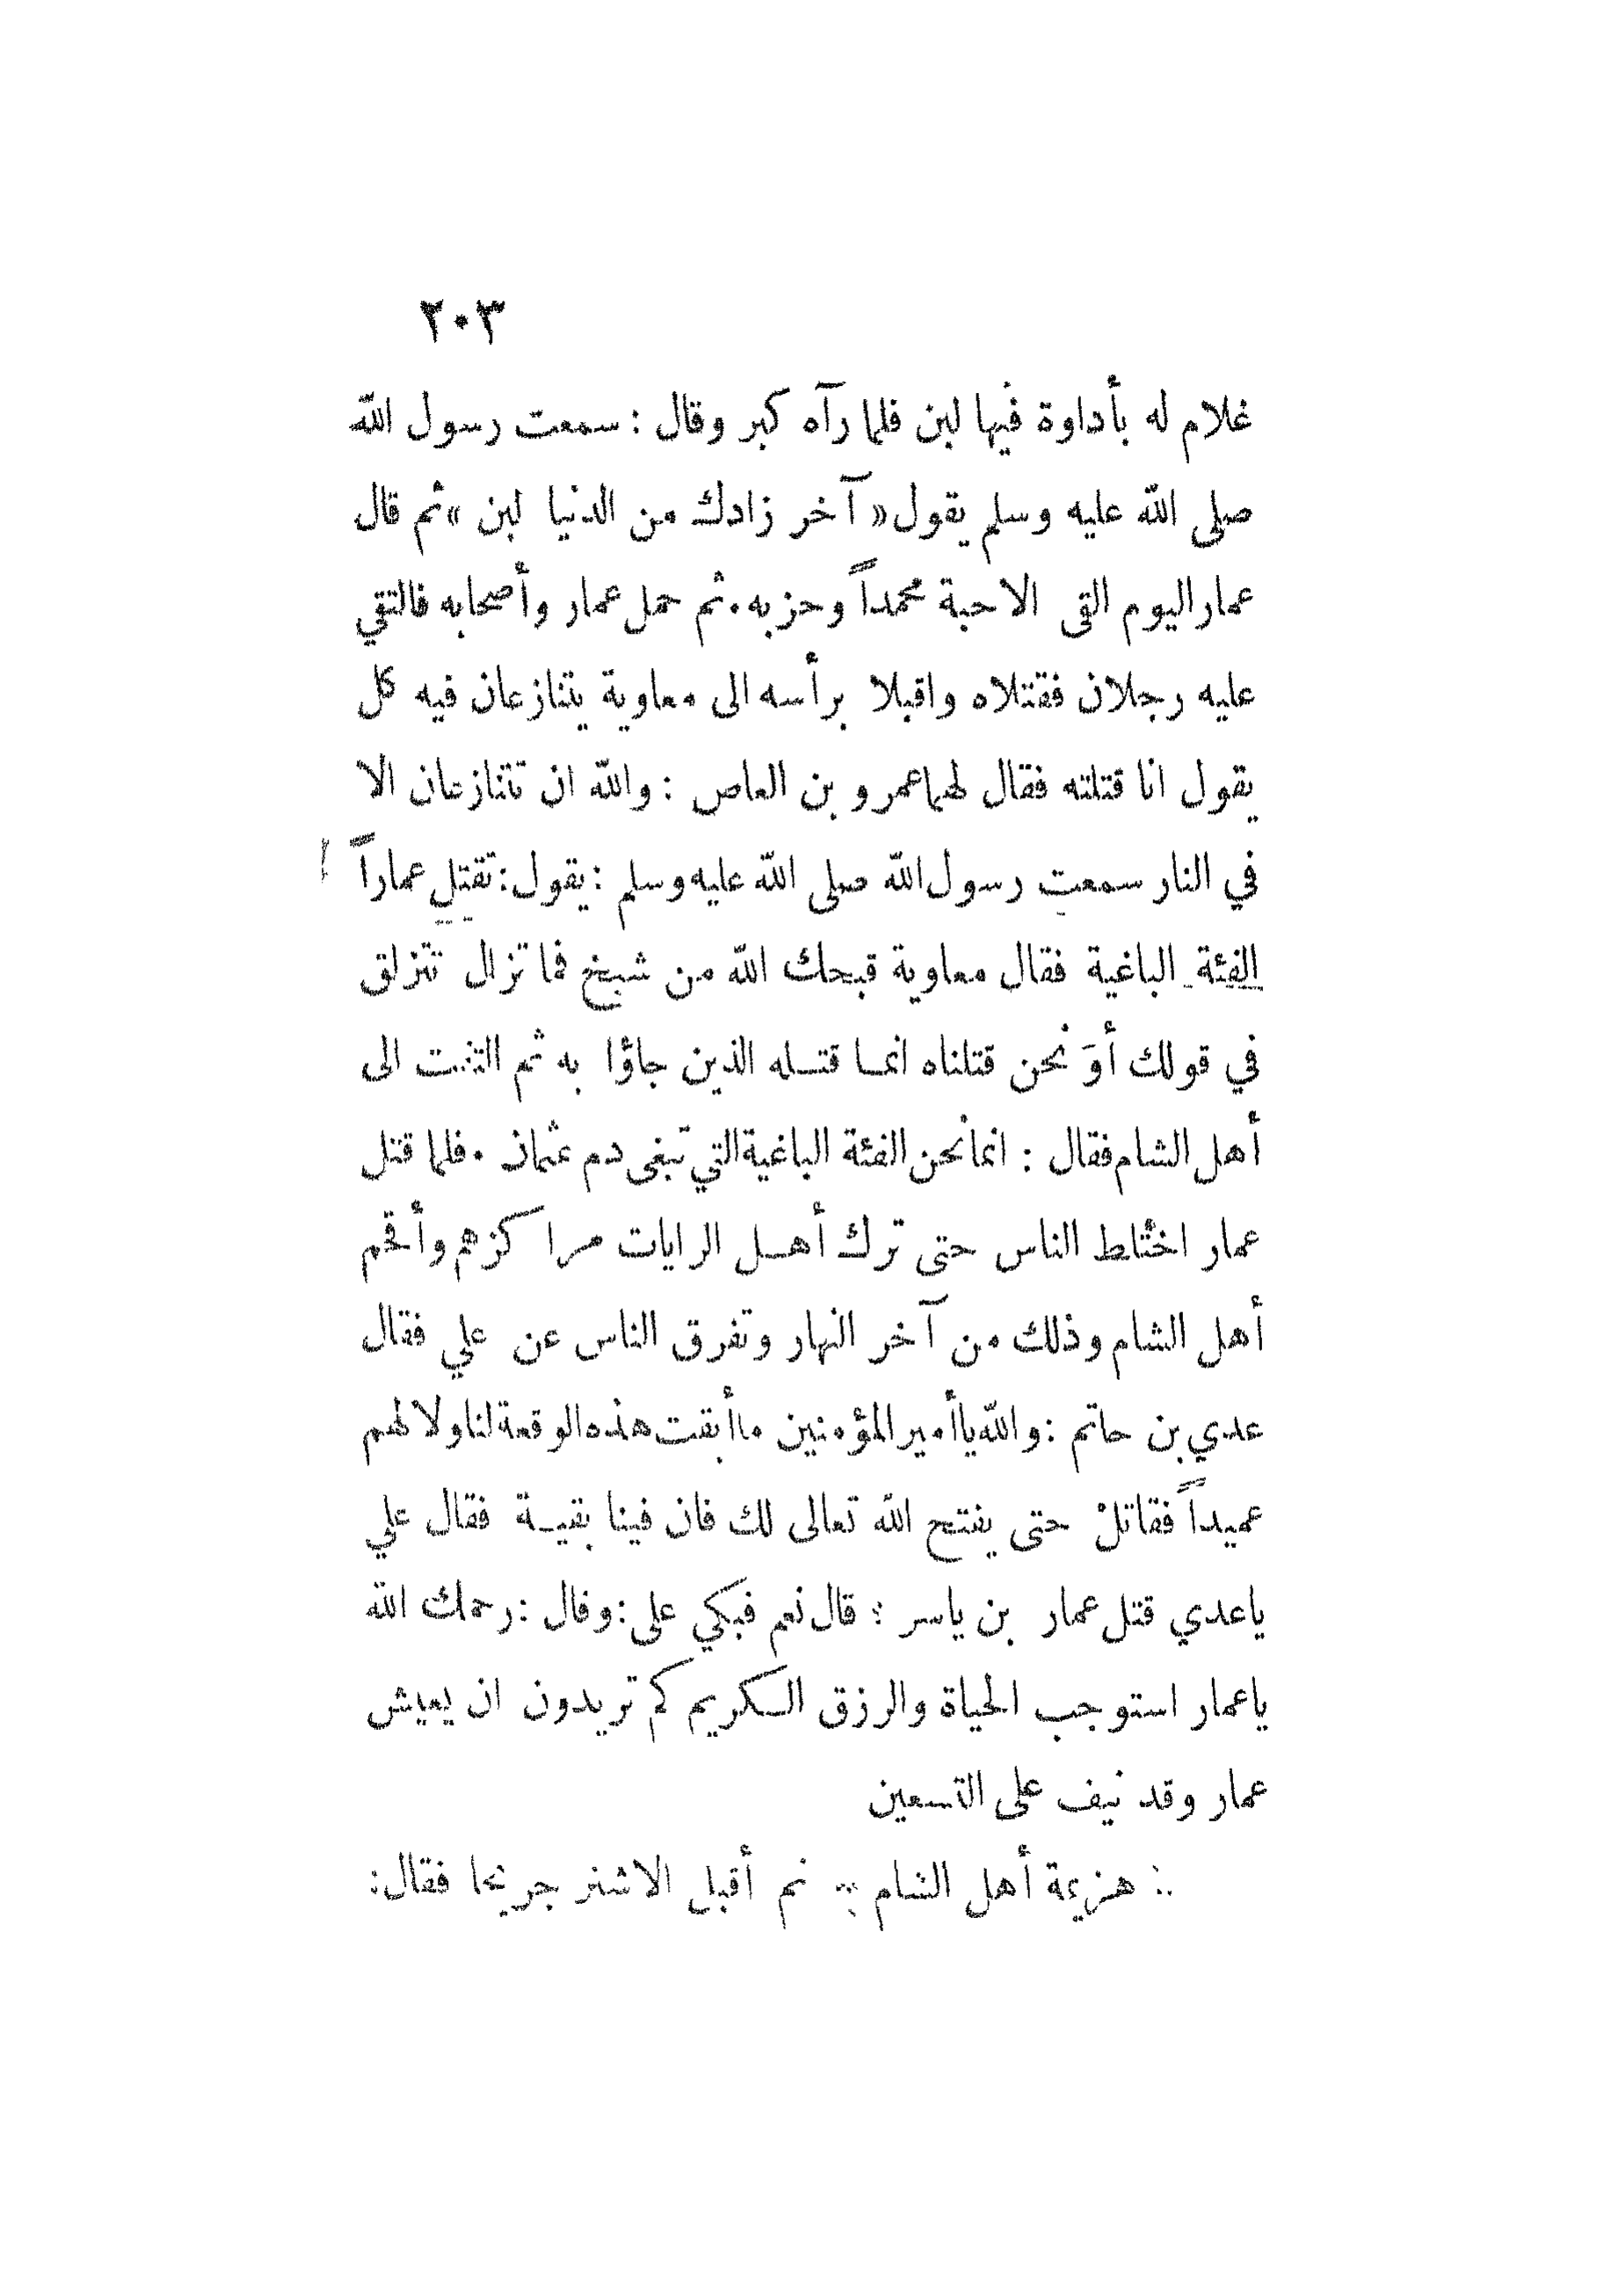 ٢٠٣
غلام له بأداوة فيها لبن فلما رآه كبر وقال : سمعت رسول الله
صلى الله عليه وسلم يقول « آخر زادك من الدنيا لبن » ثم قال
عمار اليوم القى الاحبة محمداً وحزبه . ثم حمل عمار وأصحابه فالتقي
عليه رجلان فقتلاه واقبلا برأسه الى معاوية يتنازعان فيه كل
يقول انا قتلته فقال لهما عمرو بن العاص : والله ان تتنازعان الا
في النار سمعت رسول الله صلى الله عليه وسلم : يقول : تقتل عماراً
الفئة الباغية فقال معاوية قبحك الله من شيخ فما تزال تتزلق
في قولك أوَ نحن قتلناه انما قتله الذين جاؤا به ثم التفت الى
أهل الشام فقال : انما نحن الفئة الباغية التي تبغى دم عثمان . فلما قتل
عمار اختلط الناس حتى ترك أهل الرايات مراكزهم وأقحم
أهل الشام وذلك من آخر النهار وتفرق الناس عن علي فقال
عدي بن حاتم : والله ياأمير المؤمنين ماأبقت هذه الوقعة لنا ولا لهم
عميداً فقاتلْ حتى يفتح الله تعالى لك فان فينا بقية فقال علي
ياعدي قتل عمار بن ياسر ؟ قال نعم فبكي على : وقال : رحمك الله
ياعمار استوجب الحياة والرزق الكريم كم تريدون ان يعيش
عمار وقد نيف على التسعين
هزيمة أهل الشام ثم أقبل الاشتر جريحا فقال :